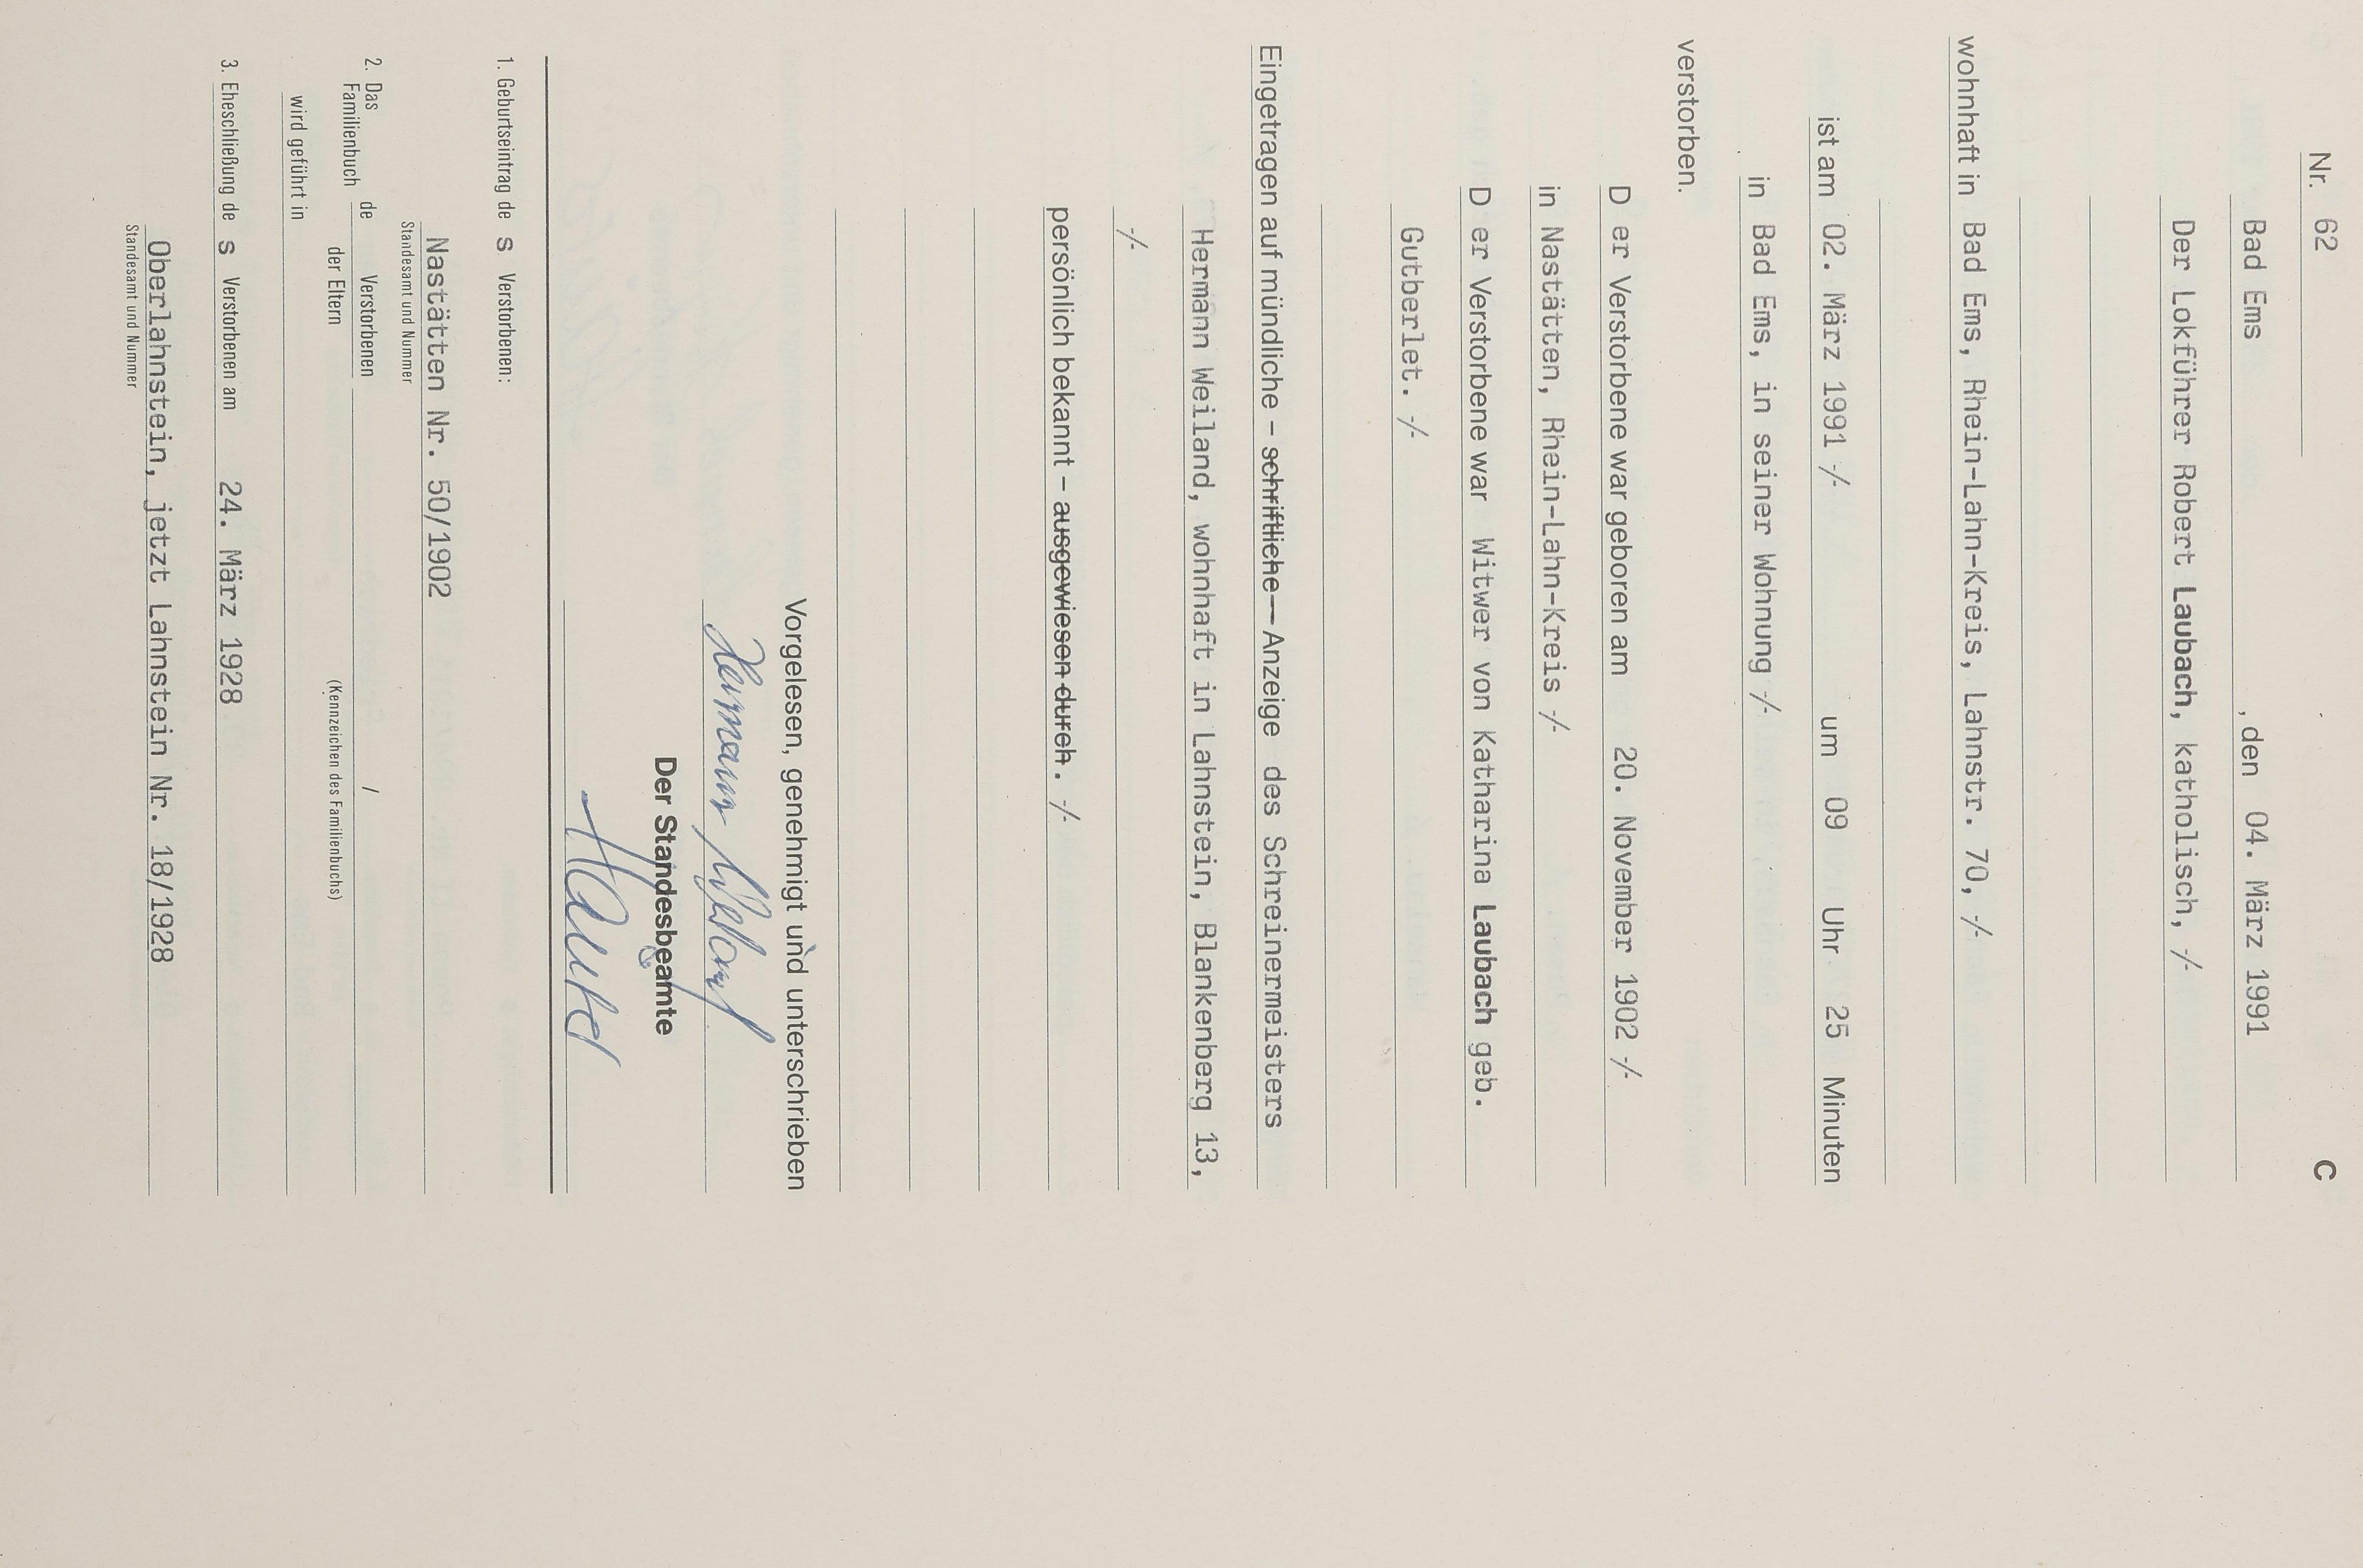 Nr. 62 C
Bad Ems , den 04. März 1991
Der Lokführer Robert Laubach, katholisch, -/-
wohnhaft in Bad Ems, Rhein-Lahn-Kreis, Lahnstr. 70, -/-
ist am 02. März 1991 -/- um 09 Uhr 25 Minuten
in Bad Ems, in seiner Wohnung -/-
verstorben.
D er Verstorbene war geboren am 20. November 1902 -/-
in Nastätten, Rhein-Lahn-Kreis -/-
D er Verstorbene war Witwer von Katharina Laubach geb.
Gutberlet. -/-
Eingetragen auf mündliche – schriftliche – Anzeige des Schreinermeisters
Hermann Weiland, wohnhaft in Lahnstein, Blankenberg 13,
-/-
persönlich bekannt – ausgewiesen durch. -/-
Vorgelesen, genehmigt und unterschrieben
Hermann Weiland
Der Standesbeamte
1. Geburtseintrag de s Verstorbenen:
Nastätten Nr. 50/1902
Standesamt und Nummer
2. Das Familienbuch de Verstorbenen /
der Eltern (Kennzeichen des Familienbuchs)
wird geführt in
3. Eheschließung de s Verstorbenen am 24. März 1928
Oberlahnstein, jetzt Lahnstein Nr. 18/1928
Standesamt und Nummer